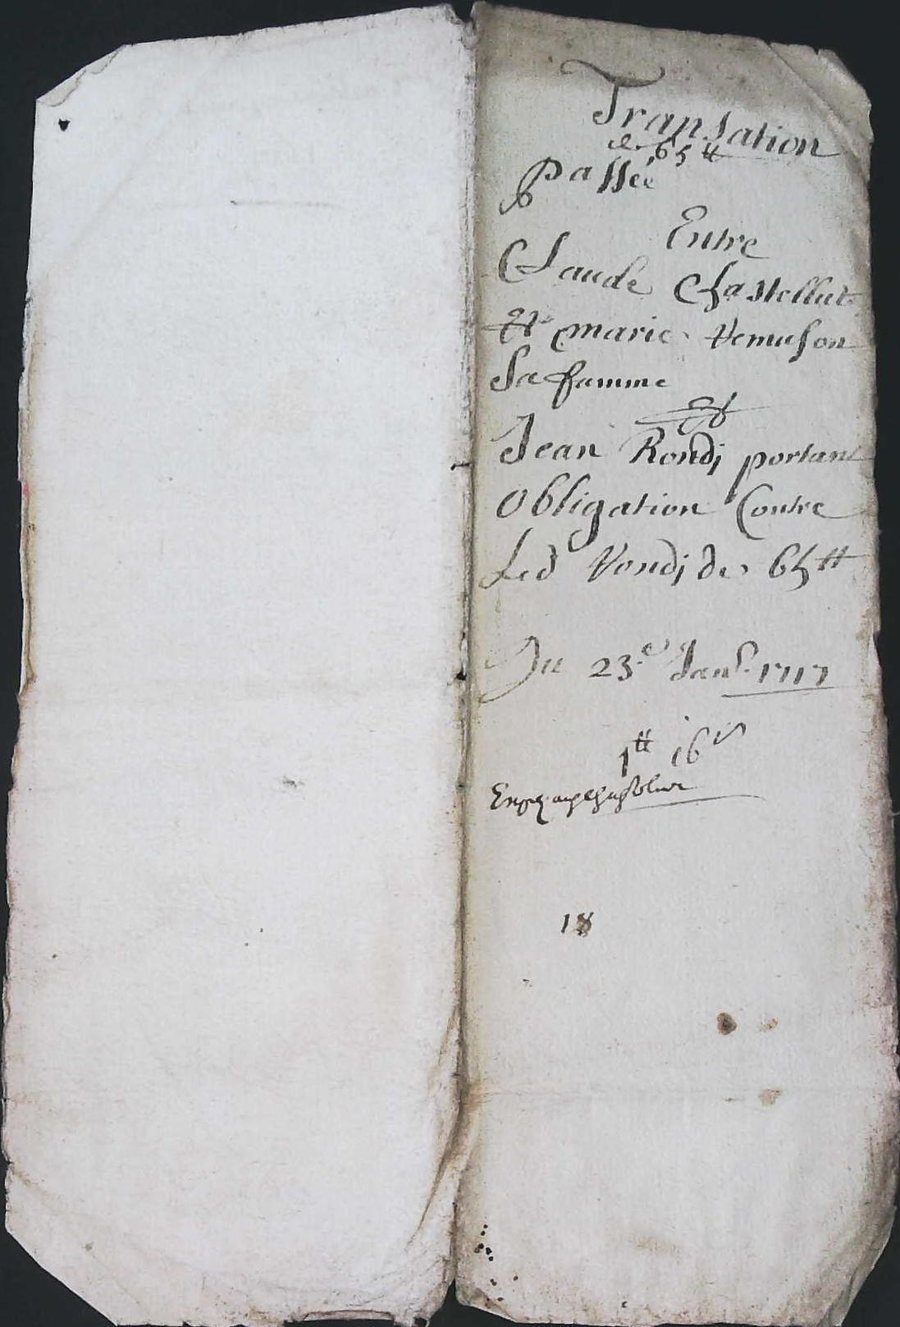 Transation
de 65tt
passée
Entre
Claude Chastellut
Et marie Vemuson
Sa famme
Et
Jean Rondj portant
Obligation Contre
Led Rondj de 65tt
Du 23e Janr 1717
1tt 16s
18